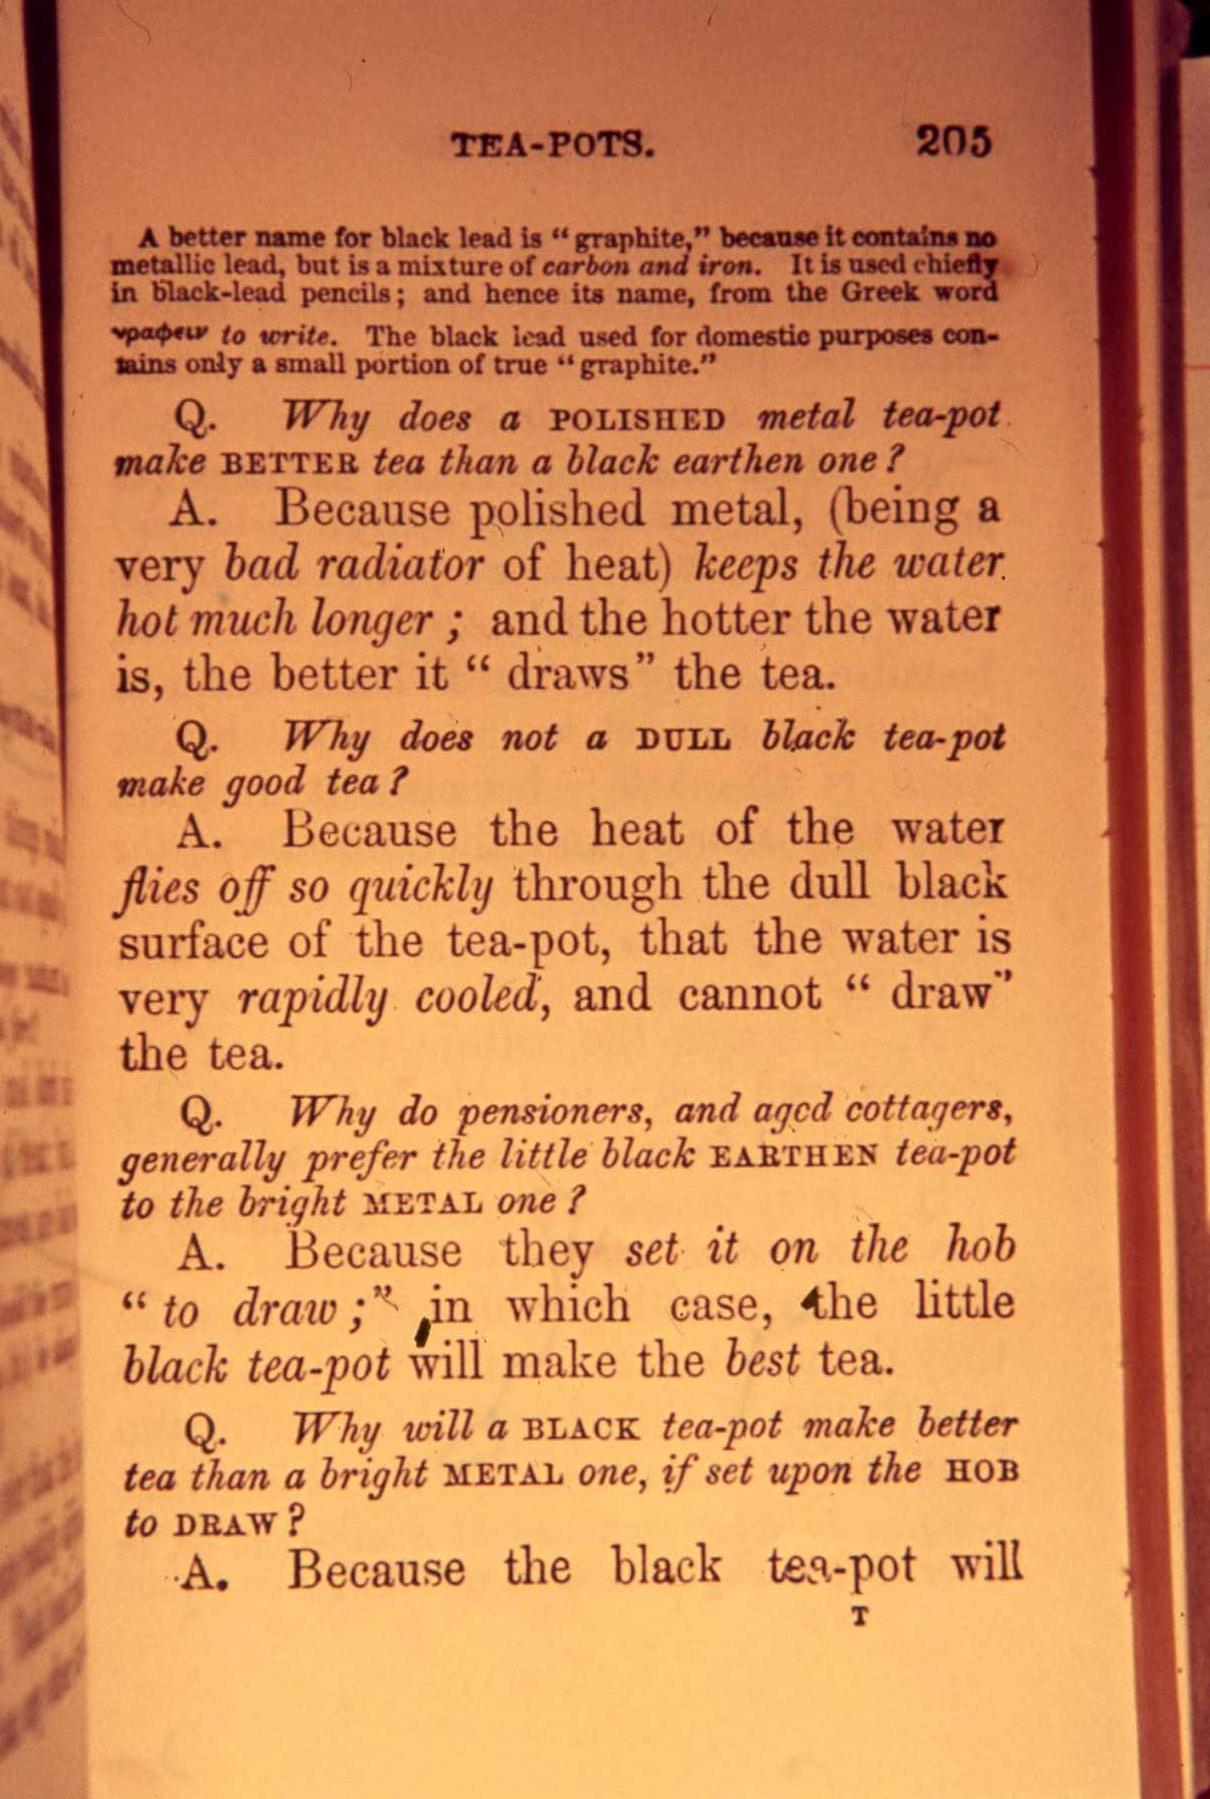 TEA-POTS. 205
A better name for black lead is “graphite,” because it contains no
metallic lead, but is a mixture of carbon and iron. It is used chiefly
in black-lead pencils; and hence its name, from the Greek word
γραφειν to write. The black lead used for domestic purposes con-
tains only a small portion of true “graphite.”
Q. Why does a POLISHED metal tea-pot
make BETTER tea than a black earthen one?
A. Because polished metal, (being a
very bad radiator of heat) keeps the water
hot much longer; and the hotter the water
is, the better it “draws” the tea.
Q. Why does not a DULL black tea-pot
make good tea?
A. Because the heat of the water
flies off so quickly through the dull black
surface of the tea-pot, that the water is
very rapidly cooled, and cannot “draw”
the tea.
Q. Why do pensioners, and aged cottagers,
generally prefer the little black EARTHEN tea-pot
to the bright METAL one?
A. Because they set it on the hob
“to draw;” in which case, the little
black tea-pot will make the best tea.
Q. Why will a BLACK tea-pot make better
tea than a bright METAL one, if set upon the HOB
to DRAW?
A. Because the black tea-pot will
T